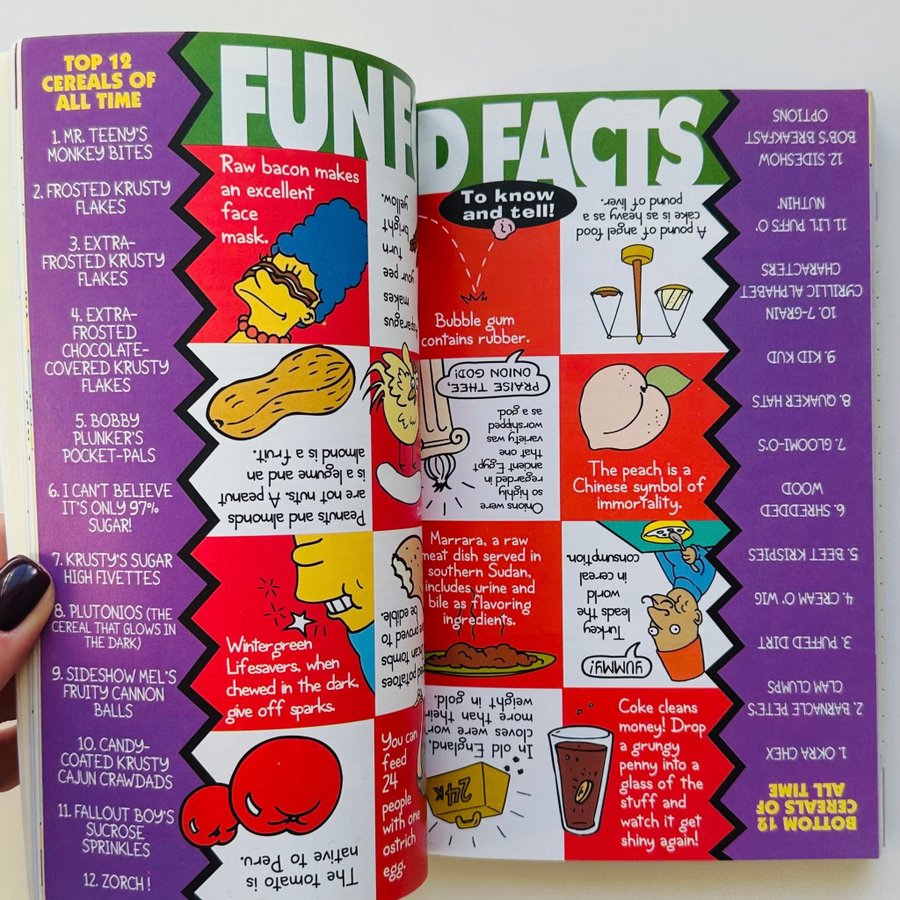 TOP 12
CEREALS OF
ALL TIME
1. MR. TEENY'S
MONKEY BITES
2. FROSTED KRUSTY
FLAKES
3. EXTRA-
FROSTED KRUSTY
FLAKES
4. EXTRA-
FROSTED
CHOCOLATE-
COVERED KRUSTY
FLAKES
5. BOBBY
PLUNKER'S
POCKET-PALS
6. I CAN'T BELIEVE
IT'S ONLY 97%
SUGAR!
7. KRUSTY'S SUGAR
HIGH FIVETTES
8. PLUTONIOS (THE
CEREAL THAT GLOWS IN
THE DARK)
9. SIDESHOW MEL'S
FRUITY CANNON
BALLS
10. CANDY-
COATED KRUSTY
CAJUN CRAWDADS
11. FALLOUT BOY'S
SUCROSE
SPRINKLES
12. ZORCH!
FUN F
D FACTS
To know
and tell!
Raw bacon makes
an excellent
face
mask.
makes
your pee
turn
bright
yellow.
Bubble gum
contains rubber.
A pound of angel food
cake is as heavy as a
pound of liver.
Peanuts and almonds
are not nuts. A peanut
is a legume and an
almond is a fruit.
PRAISE THEE,
ONION GOD!
Onions were
so highly
regarded in
ancient Egypt
that one
variety was
worshipped
as a god.
The peach is a
Chinese symbol of
immortality.
Wintergreen
Lifesavers, when
chewed in the dark,
give off sparks.
potatoes
tombs
proved to
be edible.
Marrara, a raw
meat dish served in
southern Sudan,
includes urine and
bile as flavoring
ingredients.
YUMMY!
Turkey
leads the
world
in cereal
consumption.
The tomato is
native to Peru.
You can
feed
24
people
with one
ostrich
egg.
In old England,
cloves were worth
more than their
weight in gold.
24K
Coke cleans
money! Drop
a grungy
penny into a
glass of the
stuff and
watch it get
shiny again!
BOTTOM 12
CEREALS OF
ALL TIME
1. OKRA CHEX
2. BARNACLE PETE'S
CLAM CLUMPS
3. PUFFED DIRT
4. CREAM O' WIG
5. BEET KRISPIES
6. SHREDDED
WOOD
7. GLOOMI-O'S
8. QUAKER HATS
9. KID KUD
10. 7-GRAIN
CYRILLIC ALPHABET
CHARACTERS
11. LI'L PUFFS O'
NUTHIN'
12 SIDESHOW
BOB'S BREAKFAST
OPTIONS